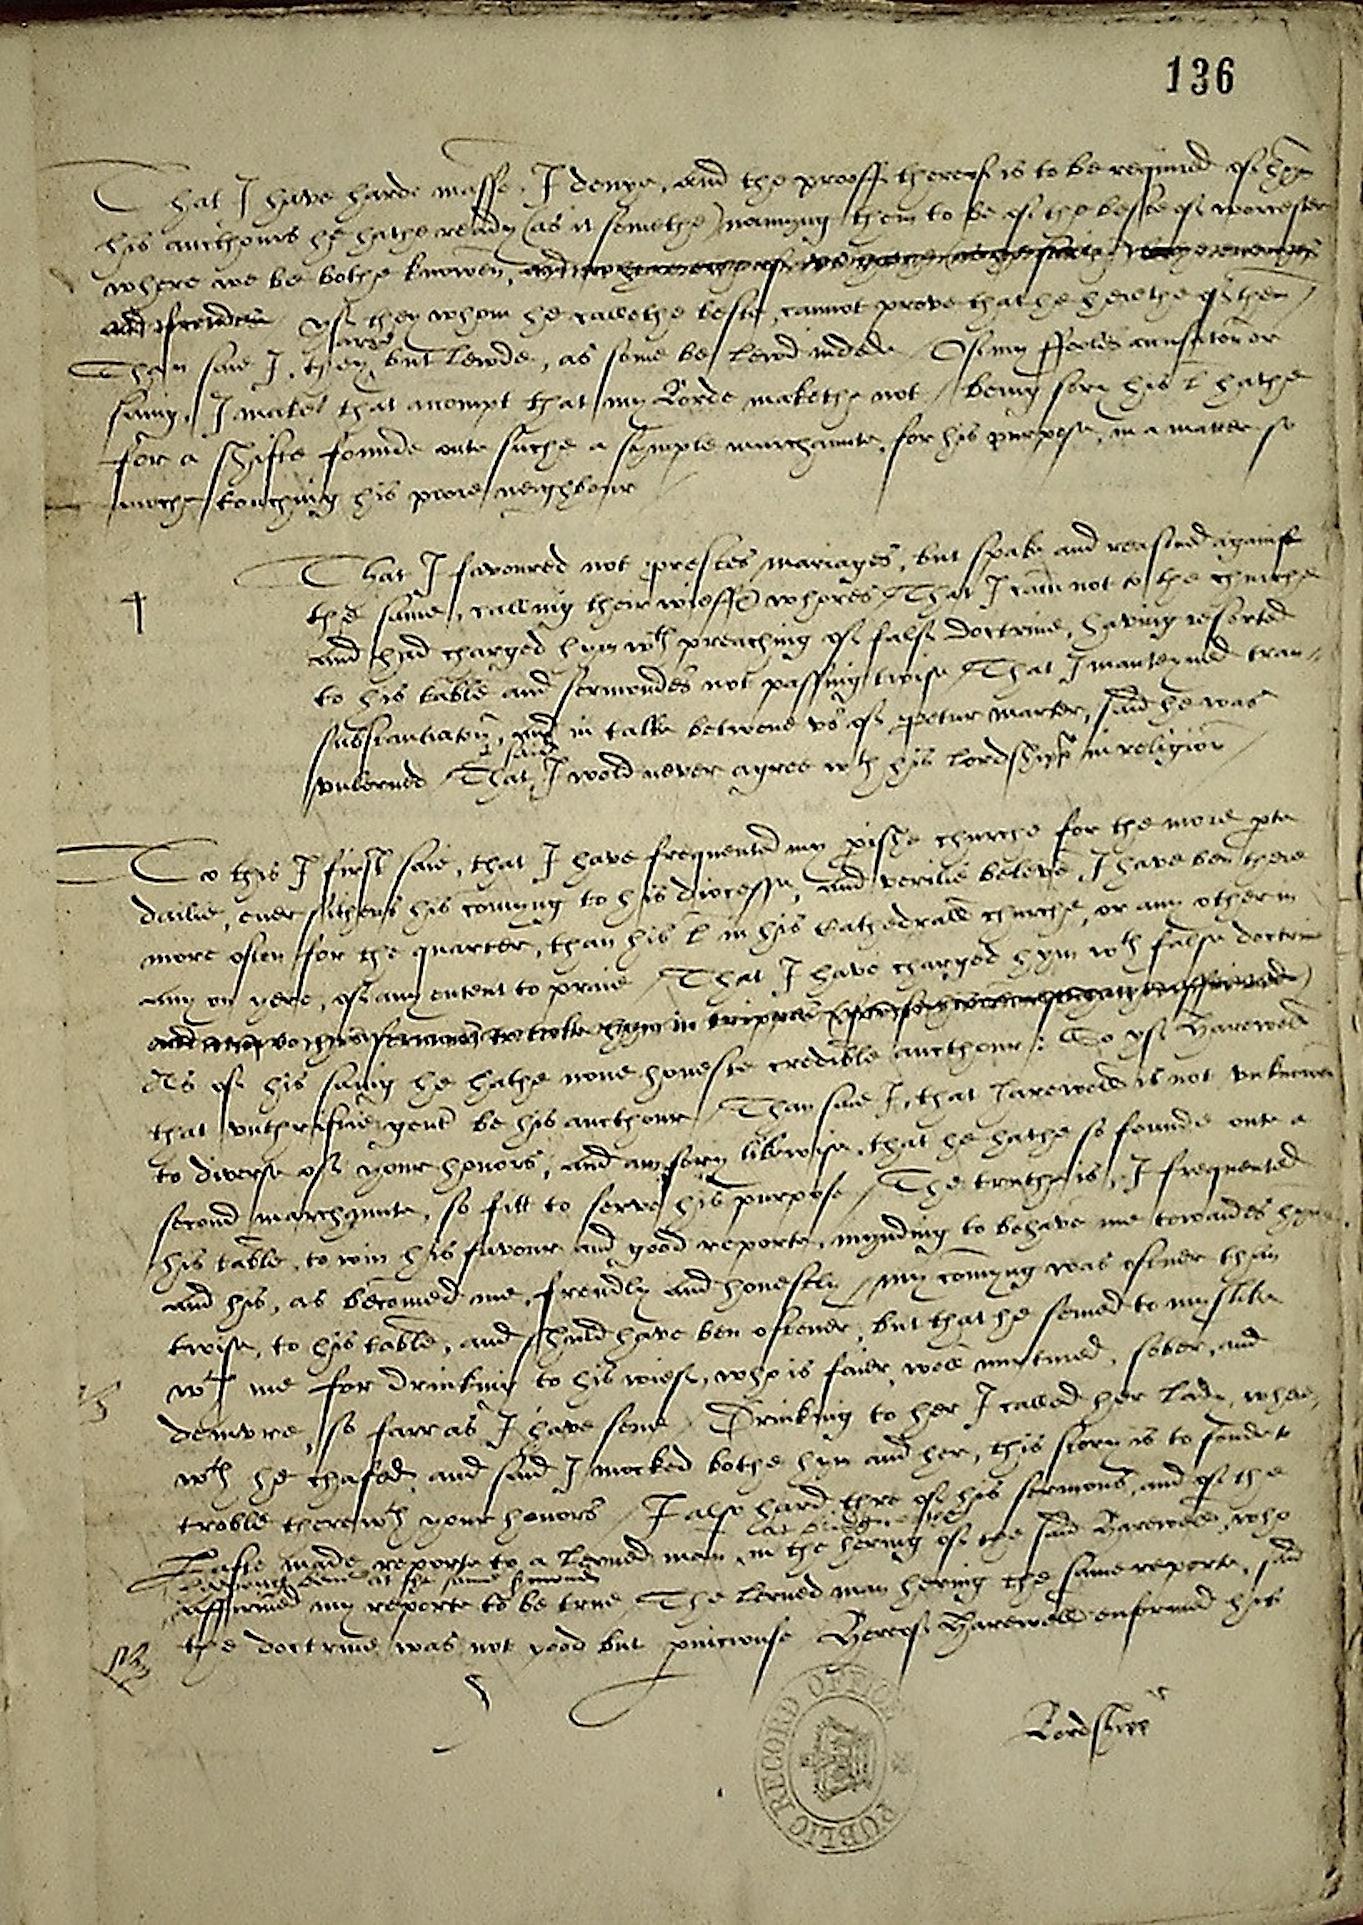 136
That I have harde masse, I denye, and the prooff therof is to be required of hym
his aucthours he hathe ready (as it semethe) namyng them to be of the beste of worcester
where we be bothe knowen,
and frendes yf they whom he callethe beste, cannot prove that he hathe
Than saie I, they are but lewde, as some be lewd indede / Of my
saing, I make that accompt that my Lorde makethe not / being sory his L hathe
for a shifte founde oute suche a symple marchaunte, for his purpose, in a matter so
moche touching his pore neighbour
That I favoured not prestes mariages, but spake and reasoned against
the same, calling their wieffes whores / That I cam not to the churche
and had charged hym wth preaching of false doctrine, having resorted
to his table and sermondes not passing twise / That I manteyned tran-
substantiation, and in talke betwene us of Petur Marter, said he was
unlerned / That I said I wold never agree wth his Lordshipp in religion /
To this I first saie, that I have frequented my pishe churche for the more pte
dailie, ever sithens his comyng to his diocesse, and verilie beleve, I have ben there
more often for the quarter, than his L in his Cathedrall churche, or any other in
any on yere, of any entent to praie / That I have charged hym wth false doctrine
to take hym in trippes
As of his saing he hathe none honeste credible aucthour : So yf Harewell
that unthriftie gent be his aucthour / Than saie I, that Harewell is not unknowen
to diverse of your honors, and am sory likewise, that he hathe so founde oute a
second marchaunte, so fitt to serve his purpose / The truthe is, I frequented
his table, to win his favour and good reporte, mynding to behave me towardes hym
and his, as becomed me, frendly and honestly / my comyng was ofener than
twise, to his table, and shuld have ben oftener, but that he semed to myslike
wth me for drinking to his wief, who is faier, well nurtured, sober, and
demure, so farr as I have sene / Drinking to her I called her Lady, where
wth he chafed, and said I mocked bothe hym and her, this story is to fonde to
troble therewth your honors / I also hard thre of his sermons, and of the
Laste made reporte to a lerned man, in the hering of the said Harewell, who
being at the same sermond
affirmed my reporte to be true / The lerned man hering the same reporte, said
the doctrine was not good but pniciouse Hereof Harewell enformed his
Lordshipp
PUBLIC RECORD OFFICE